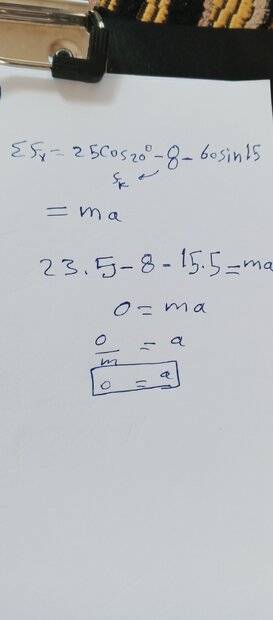 ΣFx = 25cos20° - 8 - 60sin15
fk
= ma
23.5 - 8 - 15.5 = ma
0 = ma
0/m = a
0 = a